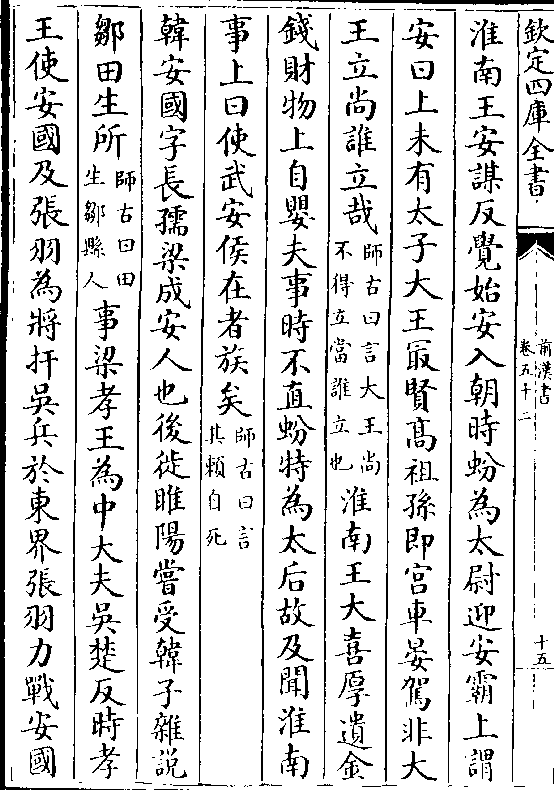 欽定四庫全書
前漢書
卷五十二
十五
淮南王安謀反覺始安入朝時蚡為太尉迎安霸上謂
安曰上未有太子大王冣賢髙祖孫即宫車晏駕非大
王立尚誰立哉
師古曰言大王尚
不得立當誰立也
淮南王大喜厚遺金
錢財物上自嬰夫事時不直蚡特為太后故及聞淮南
事上曰使武安侯在者族矣
師古曰言
其頼自死
韓安國字長孺梁成安人也後徙睢陽嘗受韓子雜説
鄒田生所
師古曰田
生鄒縣人
事梁孝王為中大夫吳楚反時孝
王使安國及張羽為將扞吳兵於東界張羽力戰安國